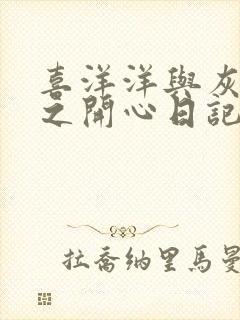 喜洋洋與灰
之開心日記
拉喬納里馬曼